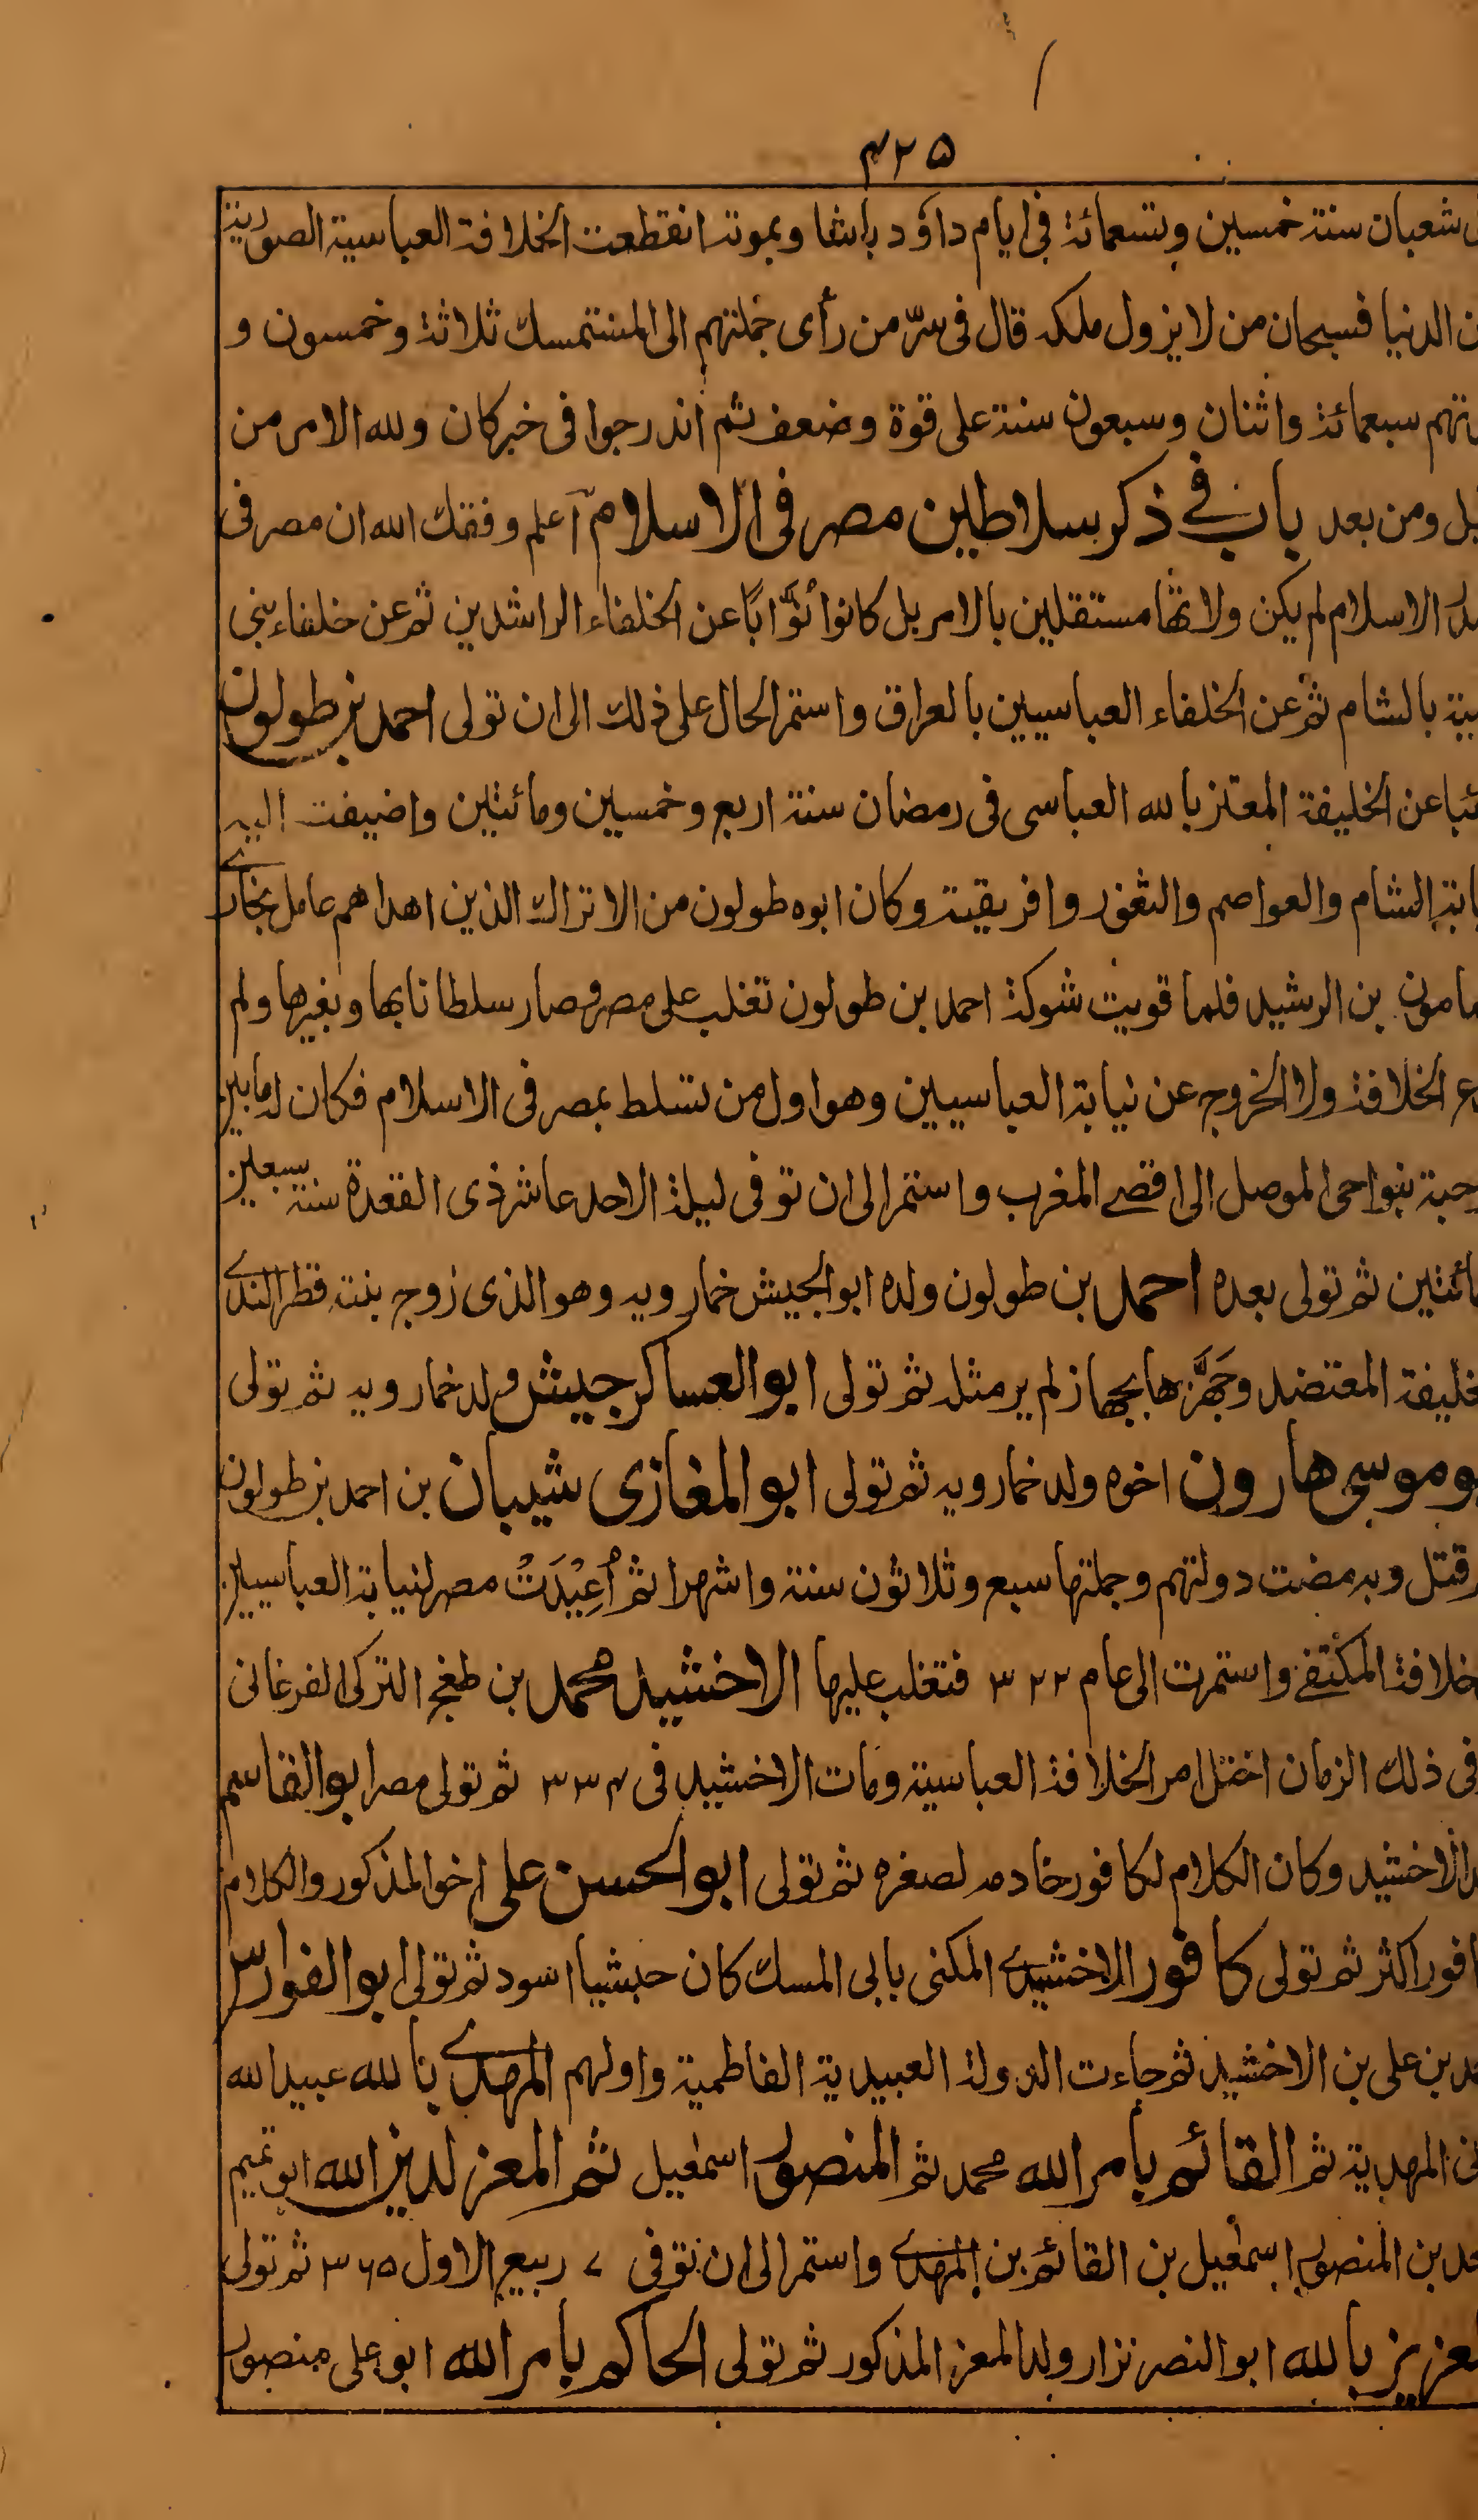 ۴۲۵
شعبان سنة خمسين وتسعمائة فى ايام داؤد باشا وبموته انقطعت الخلافة العباسية الصورية
الدنيا فسبحان من لا يزول ملكه قال فى سرّ من رأى جملتهم الى المستمسك ثلاثة وخمسون و
سبعمائة واثنان وسبعون سنة على قوة وضعف ثم اندرجوا فى خبر كان ولله الامر من
ومن بعد باب فے ذكر سلاطين مصر فى الاسلام اعلم وفقك الله ان مصر فى
الاسلام لم يكن ولاتها مستقلين بالامر بل كانوا نوّابًا عن الخلفاء الراشدين ثم عن خلفاء بنى
بالشام ثم عن الخلفاء العباسيين بالعراق واستمر الحال على ذلك الى ان تولى احمد بن طولون
عن الخليفة المعتز بالله العباسى فى رمضان سنة اربع وخمسين ومائتين واضيفت اليه
الشام والعواصم والثغور وافريقية وكان ابوه طولون من الاتراك الذين اهداهم عامل بخارے
مامون بن الرشيد فلما قويت شوكة احمد بن طولون تغلب على مصر وصار سلطانا بها وبغيرها ولم
الخلافة ولا الخروج عن نيابة العباسيين وهو اول من تسلط بمصر فى الاسلام فكان له ما بين
بنواحى الموصل الى اقصے المغرب واستمر الى ان توفى ليلة الاحد عاشر ذى القعدة سنة سبعين
ثم تولى بعده احمد بن طولون ولده ابو الجيش خمارويه وهو الذى زوج بنته قطر الندے
المعتضد وجَهَّزها بجهاز لم ير مثله ثم تولى ابو العساكر جيش ولد خمارويه ثم تولى
موسى هارون اخوه ولد خمارويه ثم تولى ابو المغازى شيبان بن احمد بن طولون
قتل وبه مضت دولتهم وجملتها سبع وثلاثون سنة واشهرا ثم أُعِيْدَتْ مصر لنيابة العباسيين
خلافة المكتفے واستمرت الى عام ۳۲۲ فتغلب عليها الاخشيد محمد بن طغج التركى الفرغانى
فى ذلك الزمان اختل امر الخلافة العباسية ومات الاخشيد فى ۳۳۴ ثم تولى مصر ابو القاسم
الاخشيد وكان الكلام لكافور خادمه لصغره ثم تولى ابو الحسن على اخو المذكور والكلام
اكثر ثم تولى كافور الاخشيدے المكنى بابى المسك كان حبشيا اسود ثم تولى ابو الفوارس
بن على بن الاخشيد ثم جاءت الدولة العبيدية الفاطمية واولهم المهدے بالله عبيد الله
المهدية ثم القائم بامر الله محمد ثم المنصور اسمعيل ثم المعز لدين الله ابو تميم
بن المنصور اسمعيل بن القائم بن المهدے واستمر الى ان توفى ۷ ربيع الاول ۳۶۵ ثم تولى
بالله ابو النصر نزار ولد المعز المذكور ثم تولى الحاكم بامر الله ابو على منصور